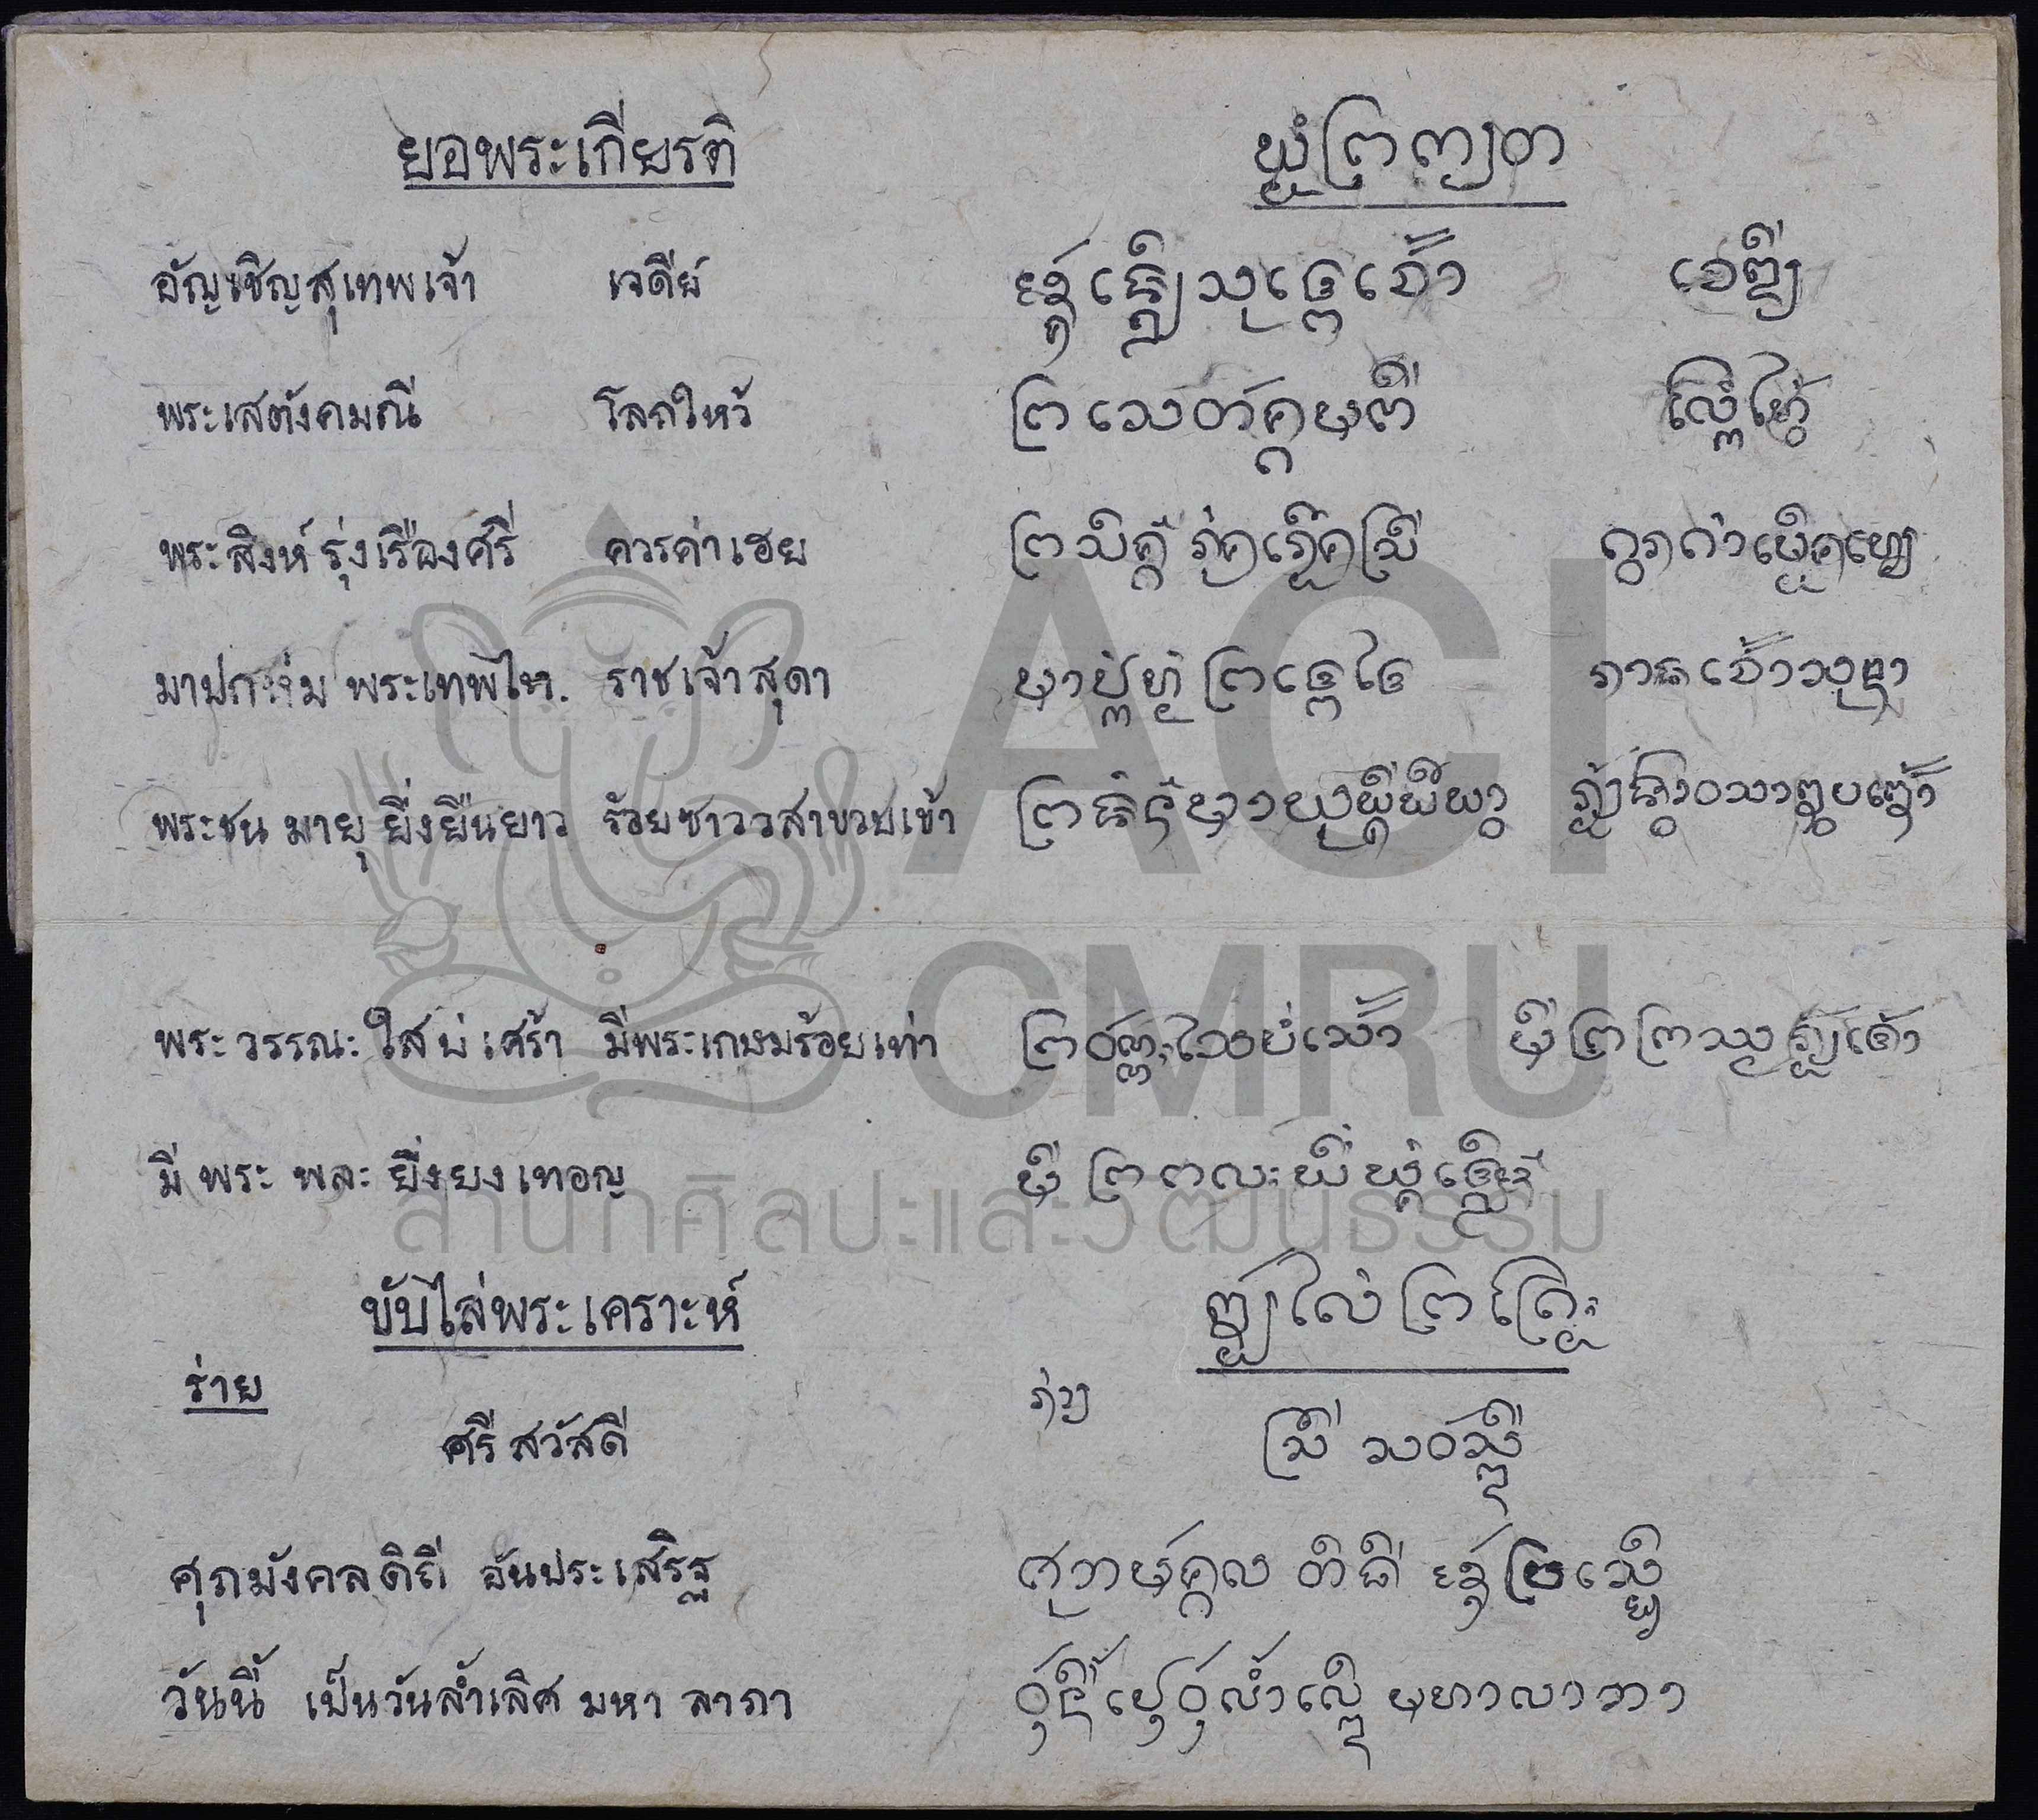 ยอพระเกียรติ ᨿᩬᩴᨻᩕᨠ᩠ᨿᨲ
อัญเชิญสุเทพเจ้า เจดีย์ ᩋᩢ᩠ᨶᨩᩮᩥ᩠ᨬᩈᩩᨴᩮ᩠ᨻᨧᩮᩢ᩶ᩣ ᨧᩮᨯᩦ᩠ᨿ
พระเสตังคมณี โลกใหว้ ᨻᩕᩈᩮᨲᩢᨦ᩠ᨣᨾᨱᩦ ᩃᩰ᩠ᨠᩉᩲ᩠ᩅ᩶
พระสิงห์รุ่งเรืองศรี ควรค่าเฮย ᨻᩕᩈᩥᨦ᩠ᨣ᩺ ᩁᩩ᩵ᨦᩁᩮᩬᩥᨦᩈᩕᩦ
มาปกงำม พระเทพไท. ราชเจ้าสุดา ᨾᩣᨻᩕᨴᩮ᩠ᨻᨴᩱ ᩁᩣᨩᨧᩮᩢ᩶ᩣᩈᩩᨯᩣ
พระชนมายุ ยิ่งยืนยาว ร้อยซาววสาขวบเข้า
พระวรรณะใสบ่เศร้า มีพระเกษมร้อยเท่า ᨻᩕᩅᨱ᩠ᨱᩈᩱᨷᩴ᩵ᩈᩮᩢ᩶ᩣ
มี พระ พละ ยิ่งยง เทอญ ᨾᩦ ᨻᩕ ᨻᩃᩡ ᨿᩥ᩵ᨦ
ขับไล่พระเคราะห์ ᨡᩢ᩠ᨷᩃᩱ᩵ᨻᩕᨣᩕᩰᩬᩡ
ร่าย ᩁ᩵ᩣ᩠ᨿ
ศรีสวัสดี ᩈᩕᩦ ᩈᩅᩢᩈ᩠ᨯᩦ
ศุภมังคลดิถี อันประเสริฐ ᩆᩩᨽᨾᩢᨦ᩠ᨣᩃ ᨲᩥᨳᩦ ᩋᩢ᩠ᨶ ᨷᩕᩈᩮᩥ᩠ᨭ
วันนี้ เป็นวันล้ำเลิศ มหา ลาภา ᩅᩢ᩠ᨶᨶᩦ᩶ ᨸᩮ᩠ᨶᩅᩢ᩠ᨶᩃᩣᩴ᩶ᩃᩮᩥ᩠ᨯ ᨾᩉᩣᩃᩣᨽᩣ
ACI
CMRU
สำนักศิลปะและวัฒนธรรม